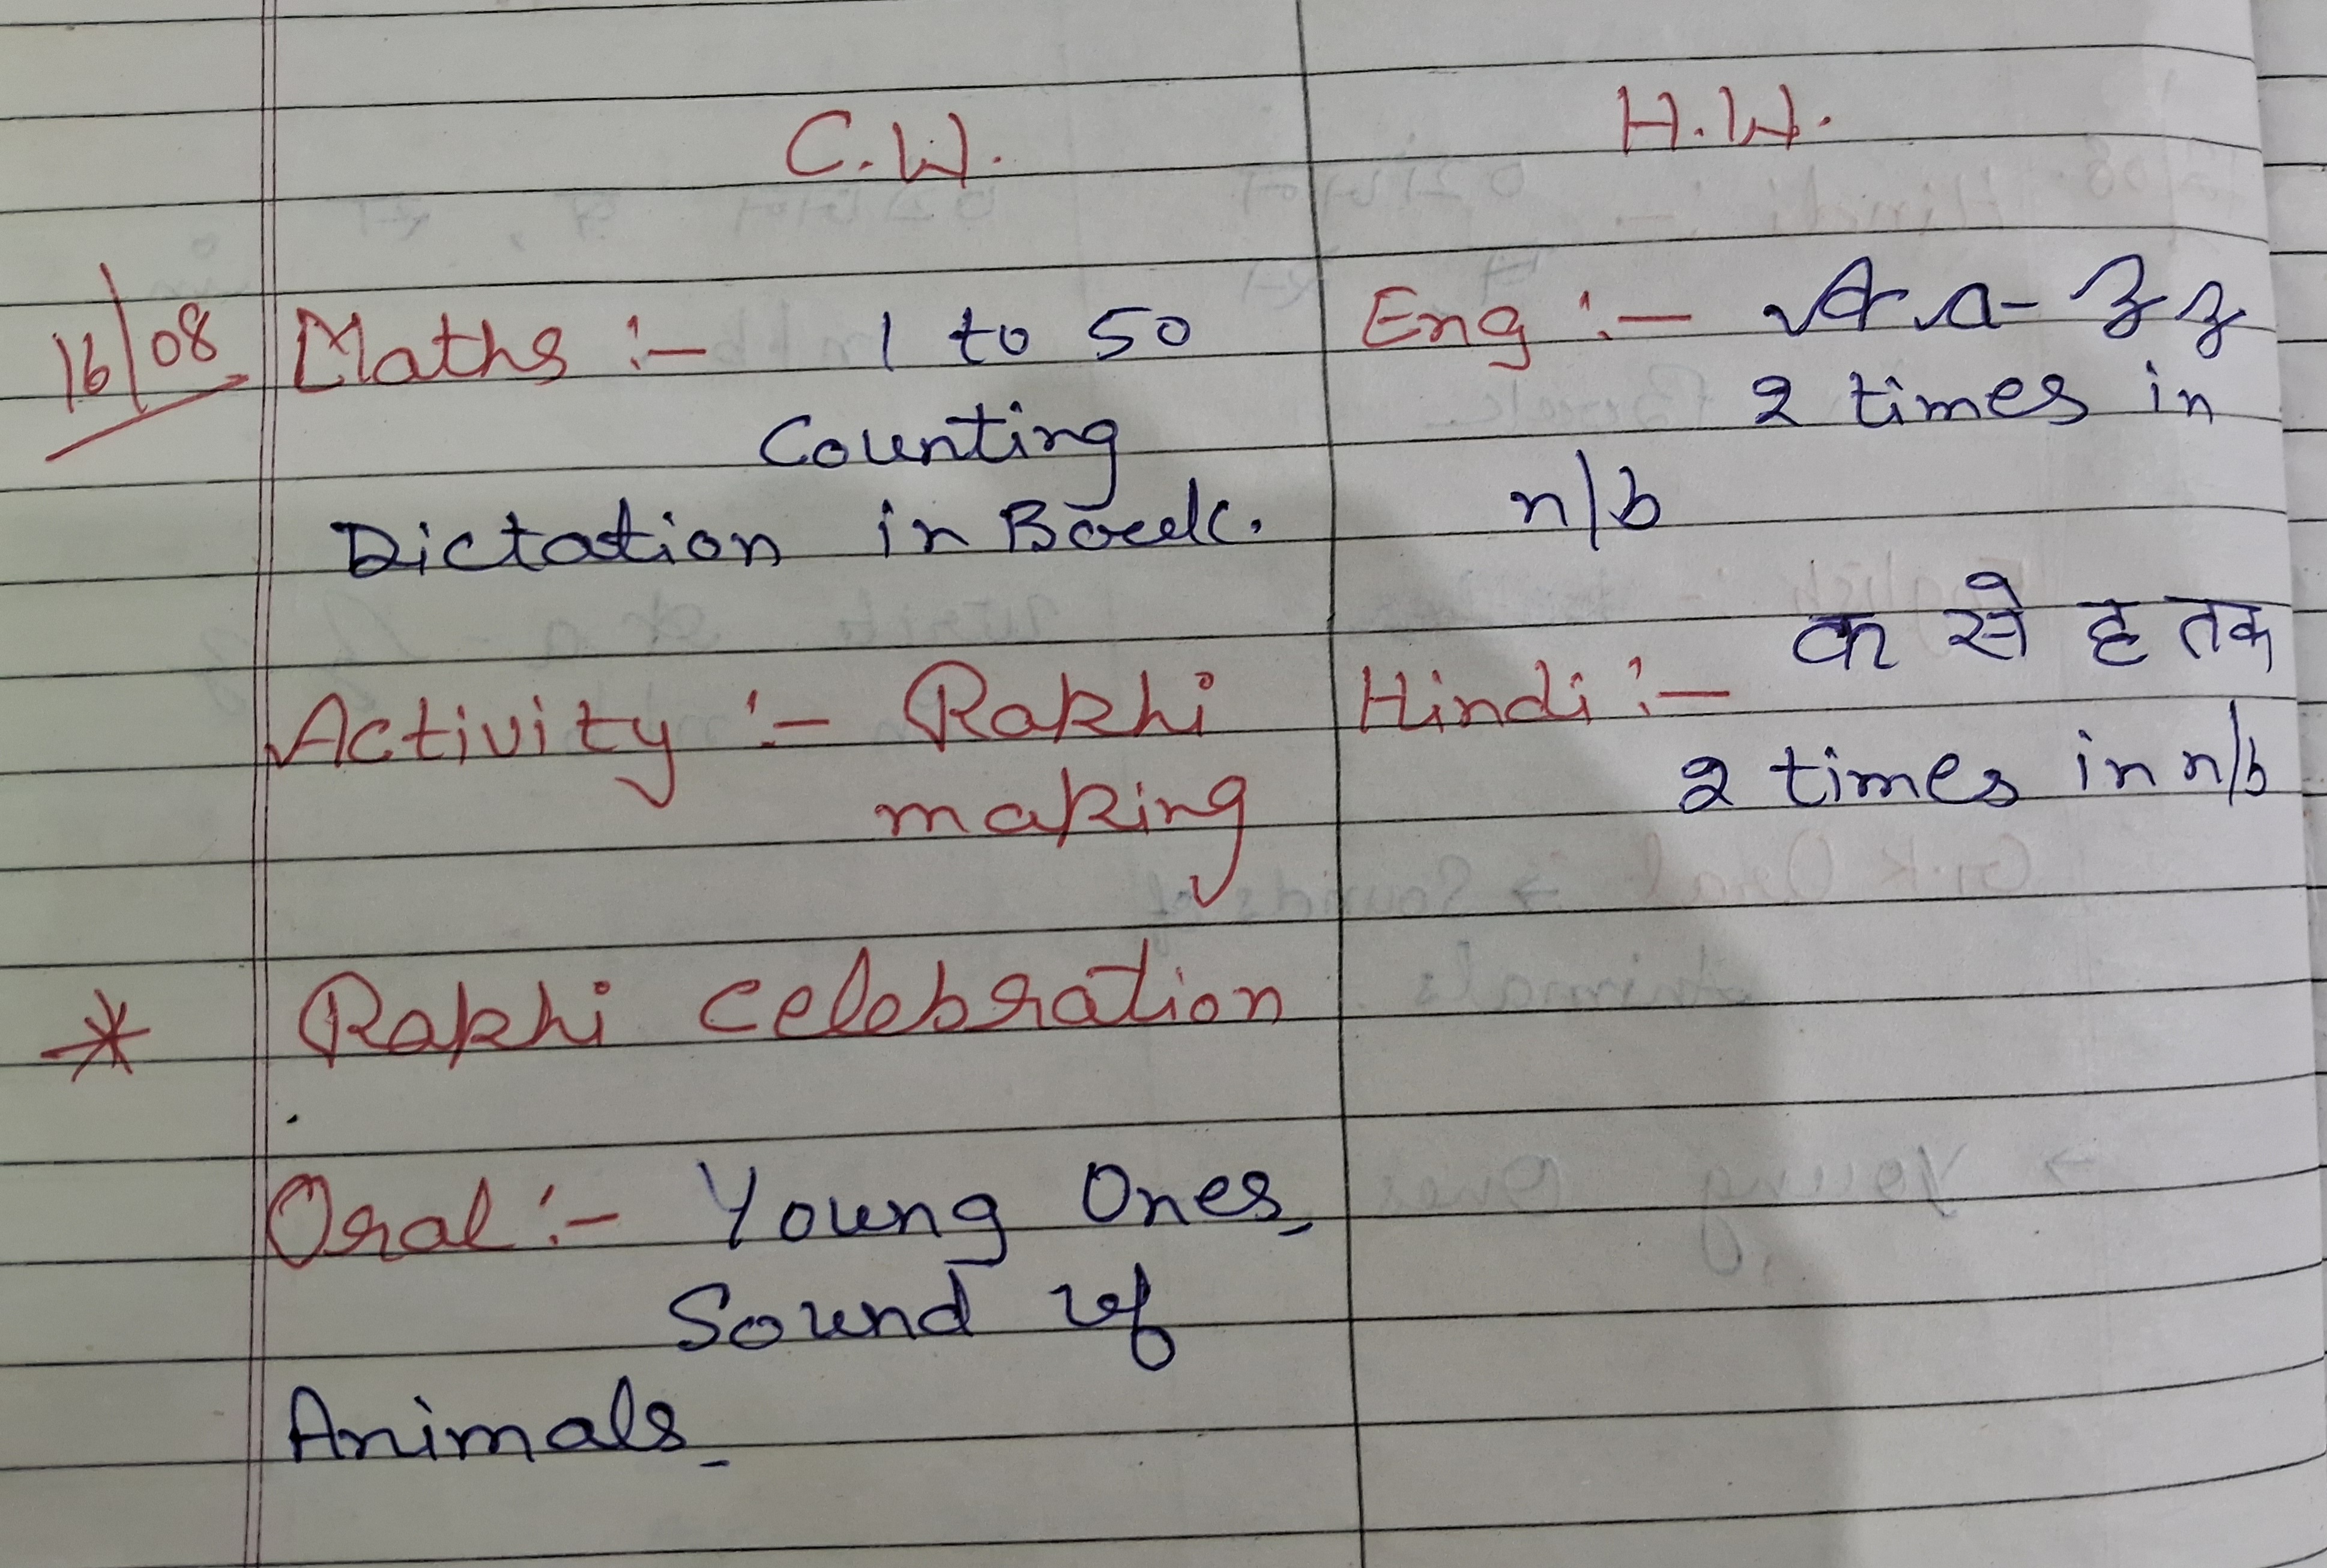 C.W.
H.W.
16/08
Maths :- 1 to 50
Counting
Dictation in Book.
Activity :- Rakhi
making
* Rakhi Celebration
Oral :- Young Ones,
Sound of
Animals.
Eng :- A a - Z z
2 times in
n/b
Hindi :- क से ह तक
2 times in n/b